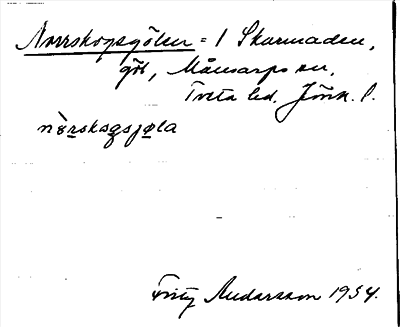 Norrskogsgölen = 1 Skarmaden,
göl, Månsarps sn,
Tveta hd. Jönk. l.
nòrskogsjøla
Fritz Andersson 1954.